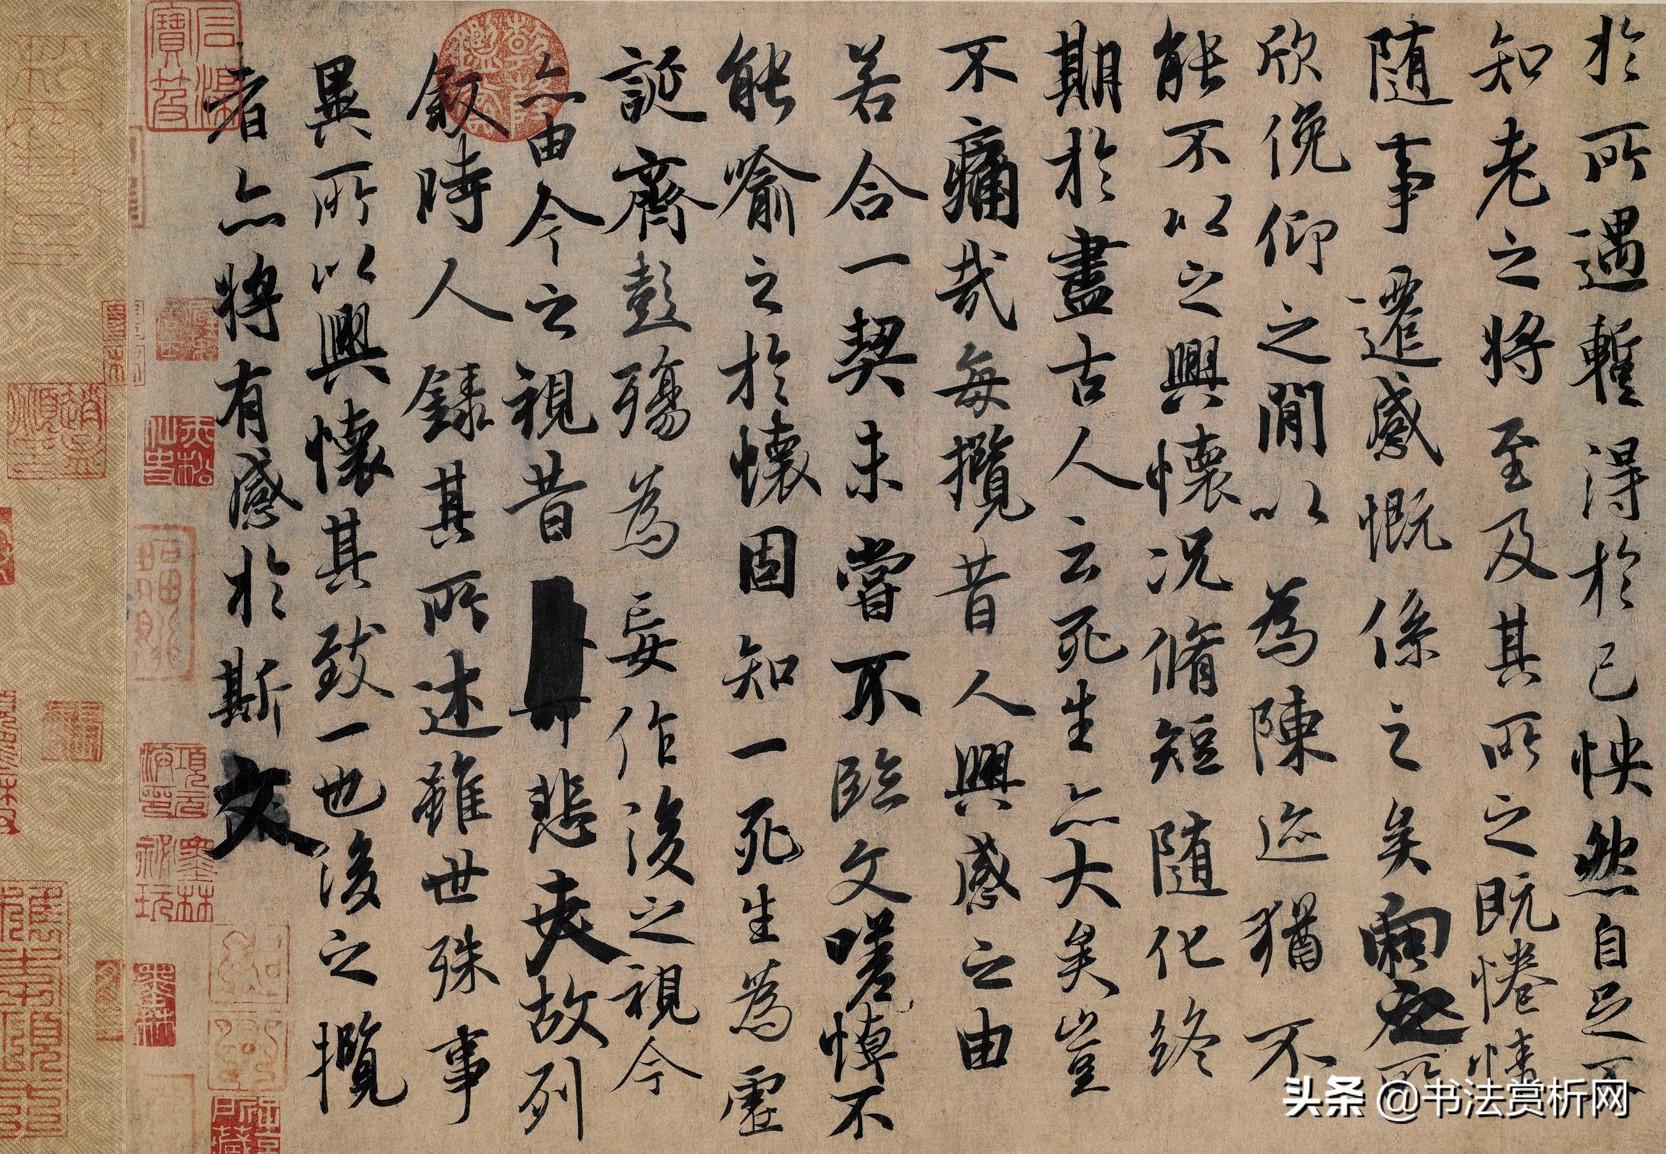 於所遇暫得於己怏然自足不
知老之將至及其所之既惓情
隨事遷感慨係之矣向之所
欣俛仰之閒以為陳迹猶不
能不以之興懷況脩短隨化終
期於盡古人云死生亦大矣豈
不痛哉每攬昔人興感之由
若合一契未嘗不臨文嗟悼不
能喻之於懷固知一死生為虛
誕齊彭殤為妄作後之視今
亦由今之視昔悲夫故列
敘時人錄其所述雖世殊事
異所以興懷其致一也後之攬
者亦將有感於斯文
头条 @书法赏析网